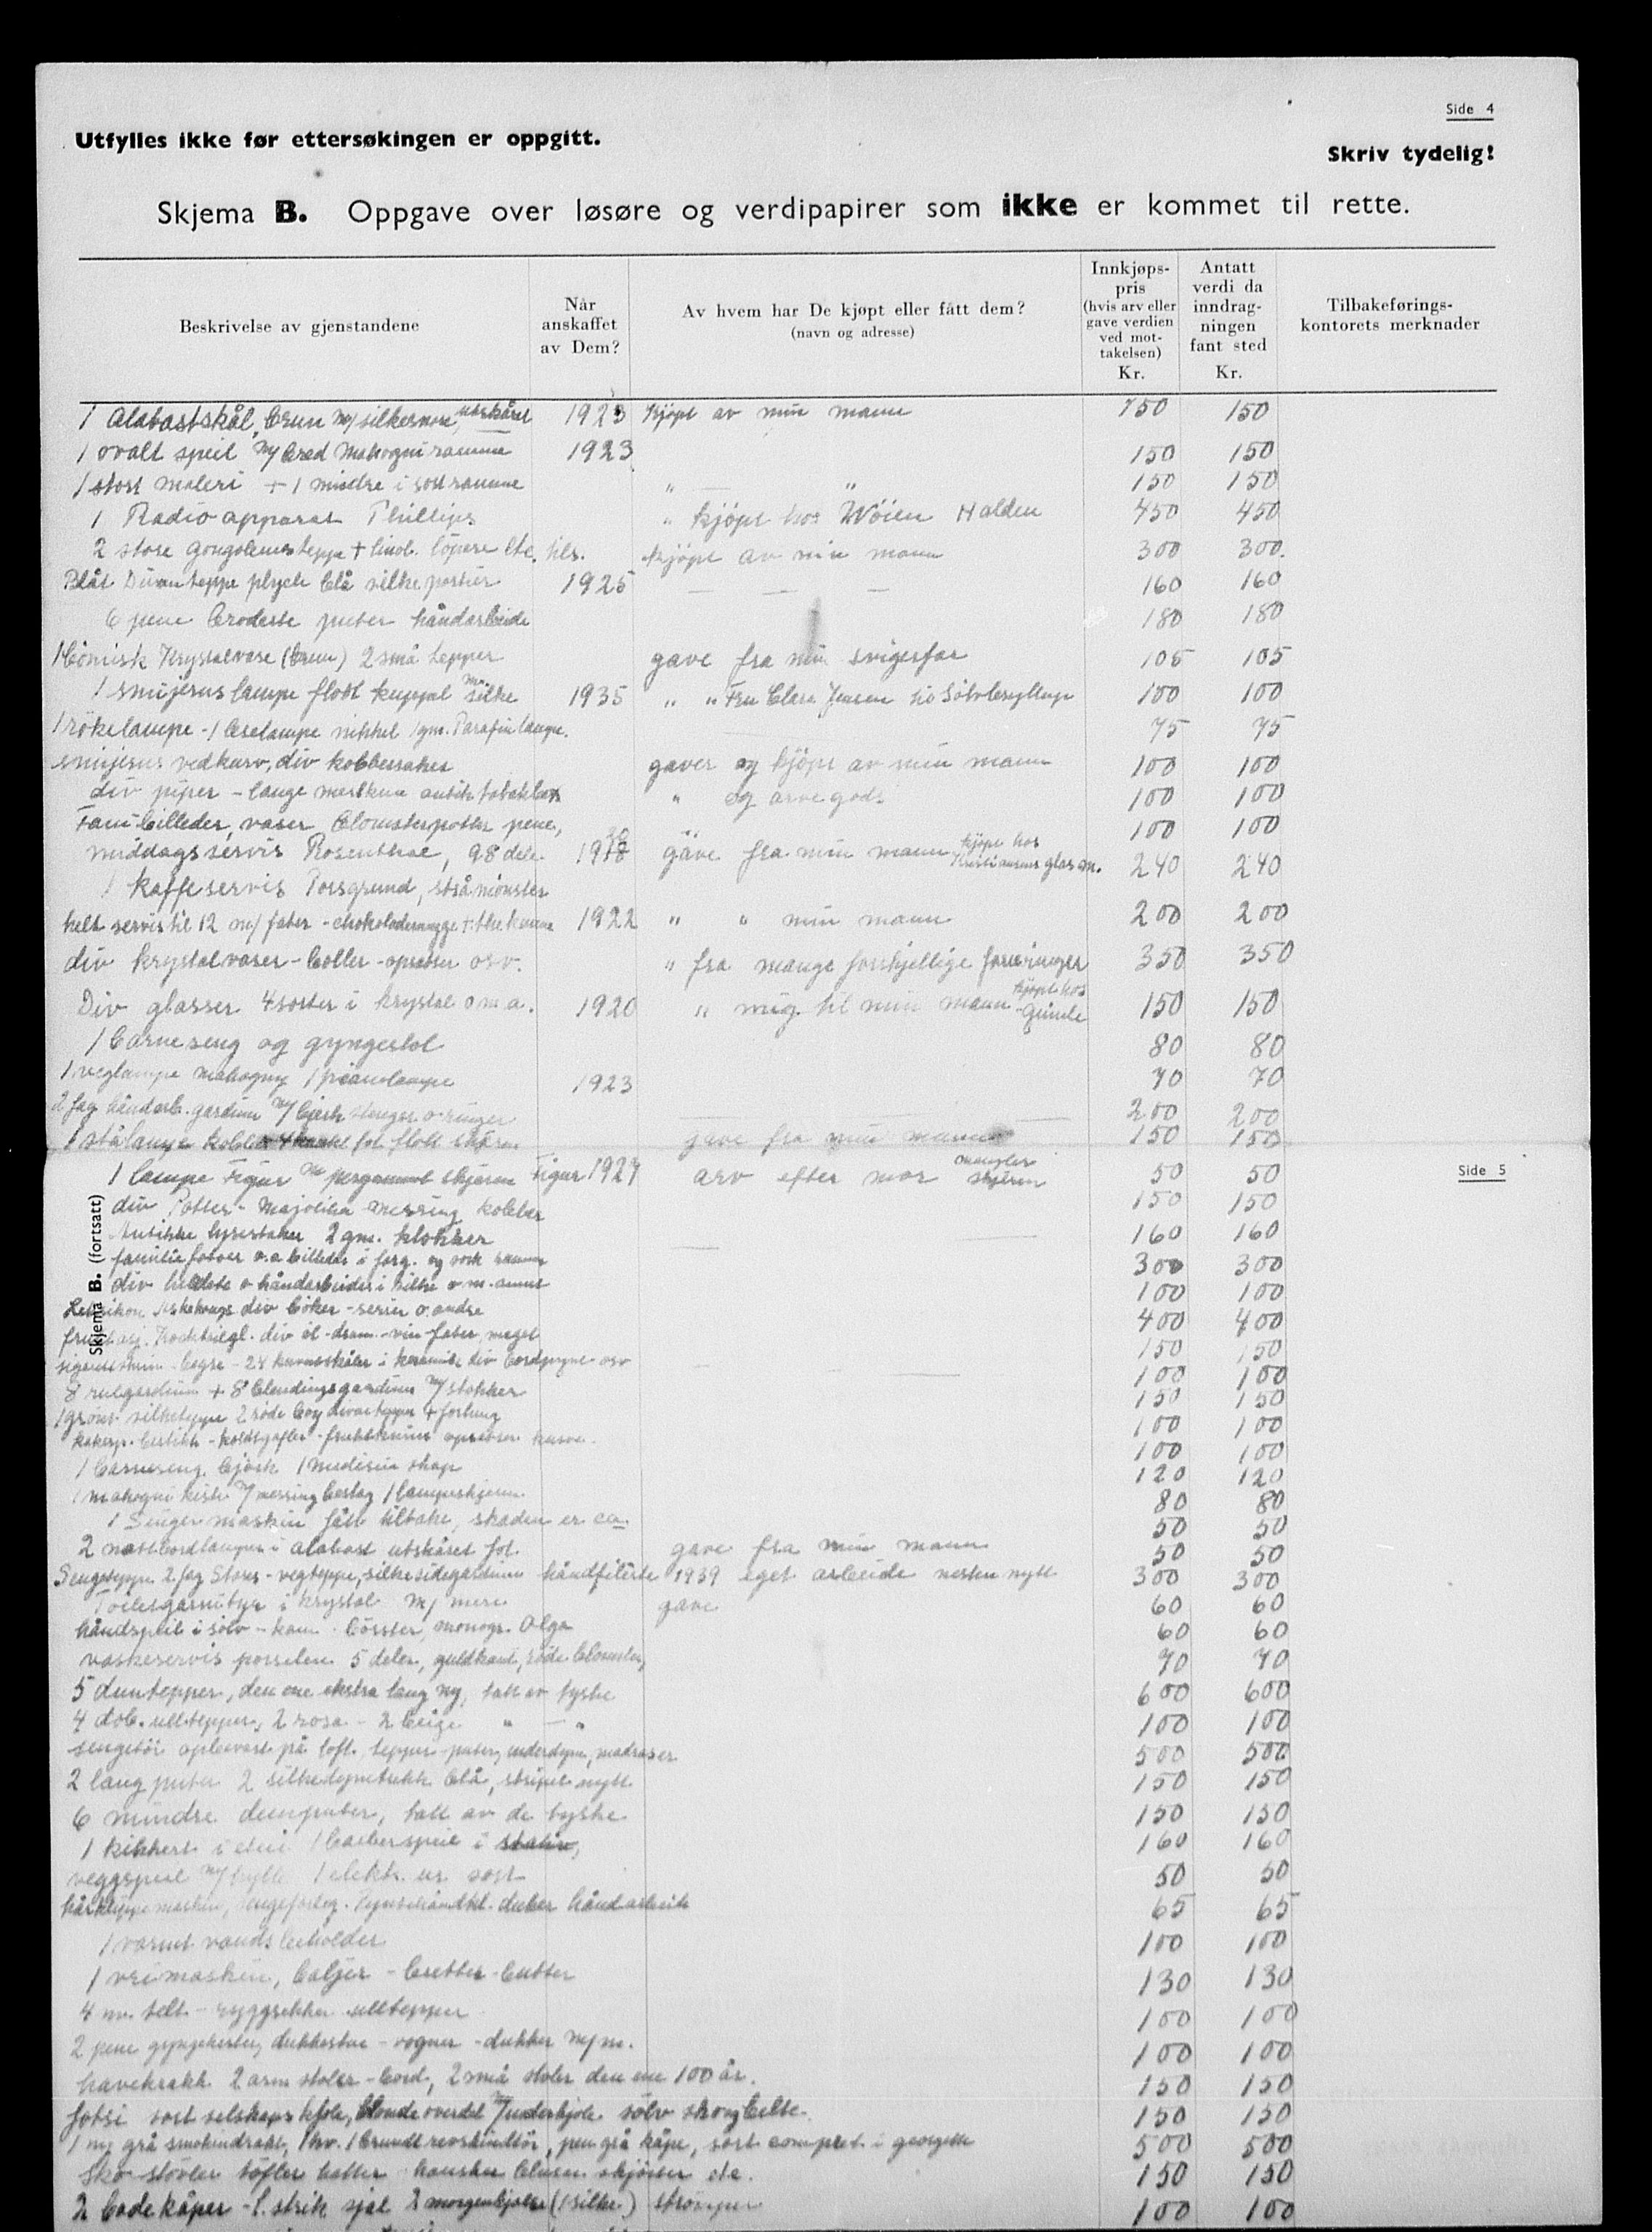 Side 4
Utfylles ikke før ettersøkingen er oppgitt.
Skriv tydelig!
Skjema B. Oppgave over løsøre og verdipapirer som ikke er kommet til rette.
Beskrivelse av gjenstandene
Når anskaffet av Dem?
Av hvem har De kjøpt eller fått dem? (navn og adresse)
Innkjøps-pris (hvis arv eller gave verdien ved mot-takelsen) Kr.
Antatt verdi da inndrag-ningen fant sted Kr.
Tilbakeførings-kontorets merknader
1 alabastskål, brun m/ silkesnore, utskåret 1923 kjöpt av min mann 150 150
1 ovalt speil m/ bred Mahogni ramme 1923 150 150
1 stort maleri + 1 mindre i sort ramme " — " 150 150
1 Radio apparat Phillips " kjöpt hos Wöien Halden 450 450
2 store gongolemsteppe + linol. löpere etc. kjöpt av min mann 300 300.
Blåt Divanteppe plysch blå silke portier 1925 — — — 160 160
6 pene broderte puter håndarbeide 180 180
1 Bömisk Krystalvase (brun) 2 små tepper gave fra min svigerfar 105 105
1 smijerns lampe flott kuppel m silke 1935 " " Fru Clara Jensen til Sölvbryllup 100 100
1 rökelampe - 1 leselampe nikkel 1 gm. Parafin lampe. 75 75
smijerns vedkurv, div kobbersaker gaver og kjöpt av min mann 100 100
div piper - lange merskum antik " og arvegods 100 100
Fam billeder, vaser blomsterpotter pene, 100 100
middagsservis Rosenthal, 98 dele gave fra min mann kjöpt hos Kristiansens glasm. 240 240
1 kaffeservis Porsgrund, stråmönster
helt servis til 12 m/ fater - chokolademugge + thekanne 1922 " " min mann 200 200
div krystalvaser - boller - opsatser osv. " fra mange forskjellige foreninger 350 350
Div glasser 4 sorter i krystal o m a. 1920 " mig til min mann kjöpt hos Gimle 150 150
1 barneseng og gyngestol 80 80
1 veglampe mahogny 1 pianolampe 1923 70 70
2 fag håndarb. gardiner m/ bjerk stenger o ringer 200 200
1 stålampe kobber fot flott skjerm gave fra min mann 150 150
1 lampe Figur m pergament skjerm Figur 1927 arv efter mor mangler skjerm 50 50
Side 5
Skjema B. (fortsatt)
div Potter - Majolika messing kobber 150 150
Antikke lysestaker 2 gm. klokker — 160 160
familie fotoer o.a billeder i farg. og sort ramme 300 300
div håndarbeider i silke o m. annet 100 100
Leksikon div böker - serier o. andre 400 400
div öl - dram - vin - fater meget 150 150
i keramik div osv 100 100
8 rulgardiner + 8 blendingsgardiner m/ stokker 150 150
1 grönt silketeppe 2 röde 100 100
100 100
1 barneseng bjerk 1 medisin skap 120 120
1 mahogni kiste m/ messing beslag 1 lampeskjerm 80 80
1 Singer maskin fått tilbake, skaden er ca. 50 50
2 nattbordlamper i alabast utskåret fot. gave fra min mann 50 50
Sengeteppe 2 fag Stores - vegteppe, silke sidegardiner håndfilerte 1939 eget arbeide nesten nytt 300 300
Toiletgarnityr i krystal m/ mere gave 60 60
håndspeil i sölv - kam - börster, monogr. Olga 60 60
vaskeservis porselen 5 deler, guldkant, röde blomster, 70 70
5 duntepper, den ene ekstra lang ny, tatt av tyske 600 600
4 dob. ulltepper, 2 rosa - 2 beige " — " 100 100
sengetöi opbevart på loft. tepper - puter, underdyne, madrasser 500 500
2 lang puter 2 silkedynetrekk blå, stripet nytt 150 150
6 mindre dunputer, tatt av de tyske 150 150
1 kikkert i etui 1 barberspeil i stativ, 160 160
veggspeil m/ hylle 1 elektr. ur sort 50 50
hårklippemaskin, duker håndarbeide 65 65
1 varmt vandsbeholder 100 100
1 vrimaskin, baljer - bretter - bøtter 130 130
4 m. telt - ryggsekker - ulltepper 100 100
2 pene gyngehester, dukkestue - vogner - dukker m/ m. 100 100
havekrakk 2 arm stoler - bord, 2 små stoler den ene 100 år. 150 150
sort selskapskjole, blonde overdel m/ underkjole sölv skong belte. 150 150
1 ny grå smokindrakt, 1 hv. pen grå kåpe, sort complet i georgette 500 500
Sko - stövler töfler hatter hansker bluser skjörter etc. 150 150
2 badekåper - 1. strik sjal 2 morgenkjoler (1 silke) strömper 100 100